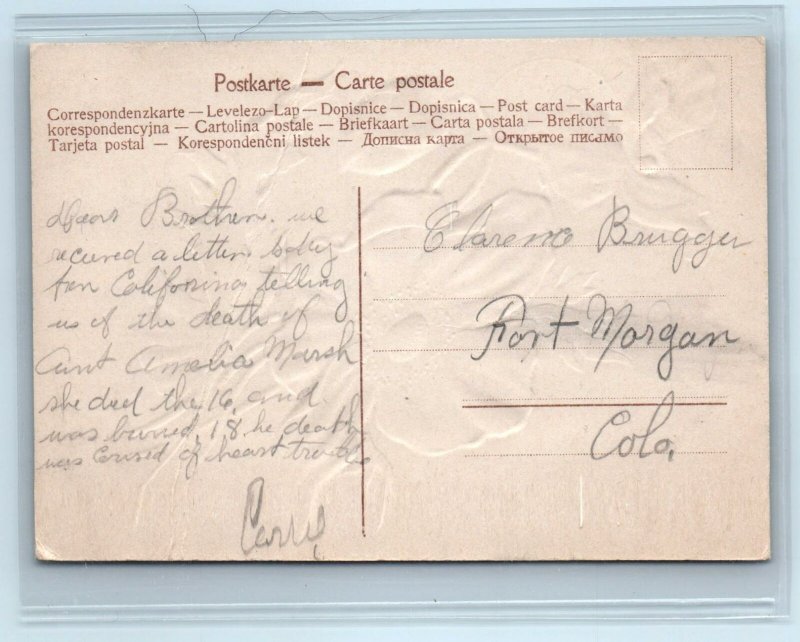 Postkarte — Carte postale
Correspondenzkarte — Levelezo-Lap — Dopisnice — Dopisnica — Post card — Karta
korespondencyjna — Cartolina postale — Briefkaart — Carta postala — Brefkort —
Tarjeta postal — Korespondenční listek — Дописна карта — Открытое письмо
Dear Brother. we
recieved a letter today
from California telling
us of the death of
Aunt Amelia Marsh
she died the 16, and
was buried, 18 he death
was caused of heart trouble
Carrie
Clarence Brugger
Fort Morgan
Colo,